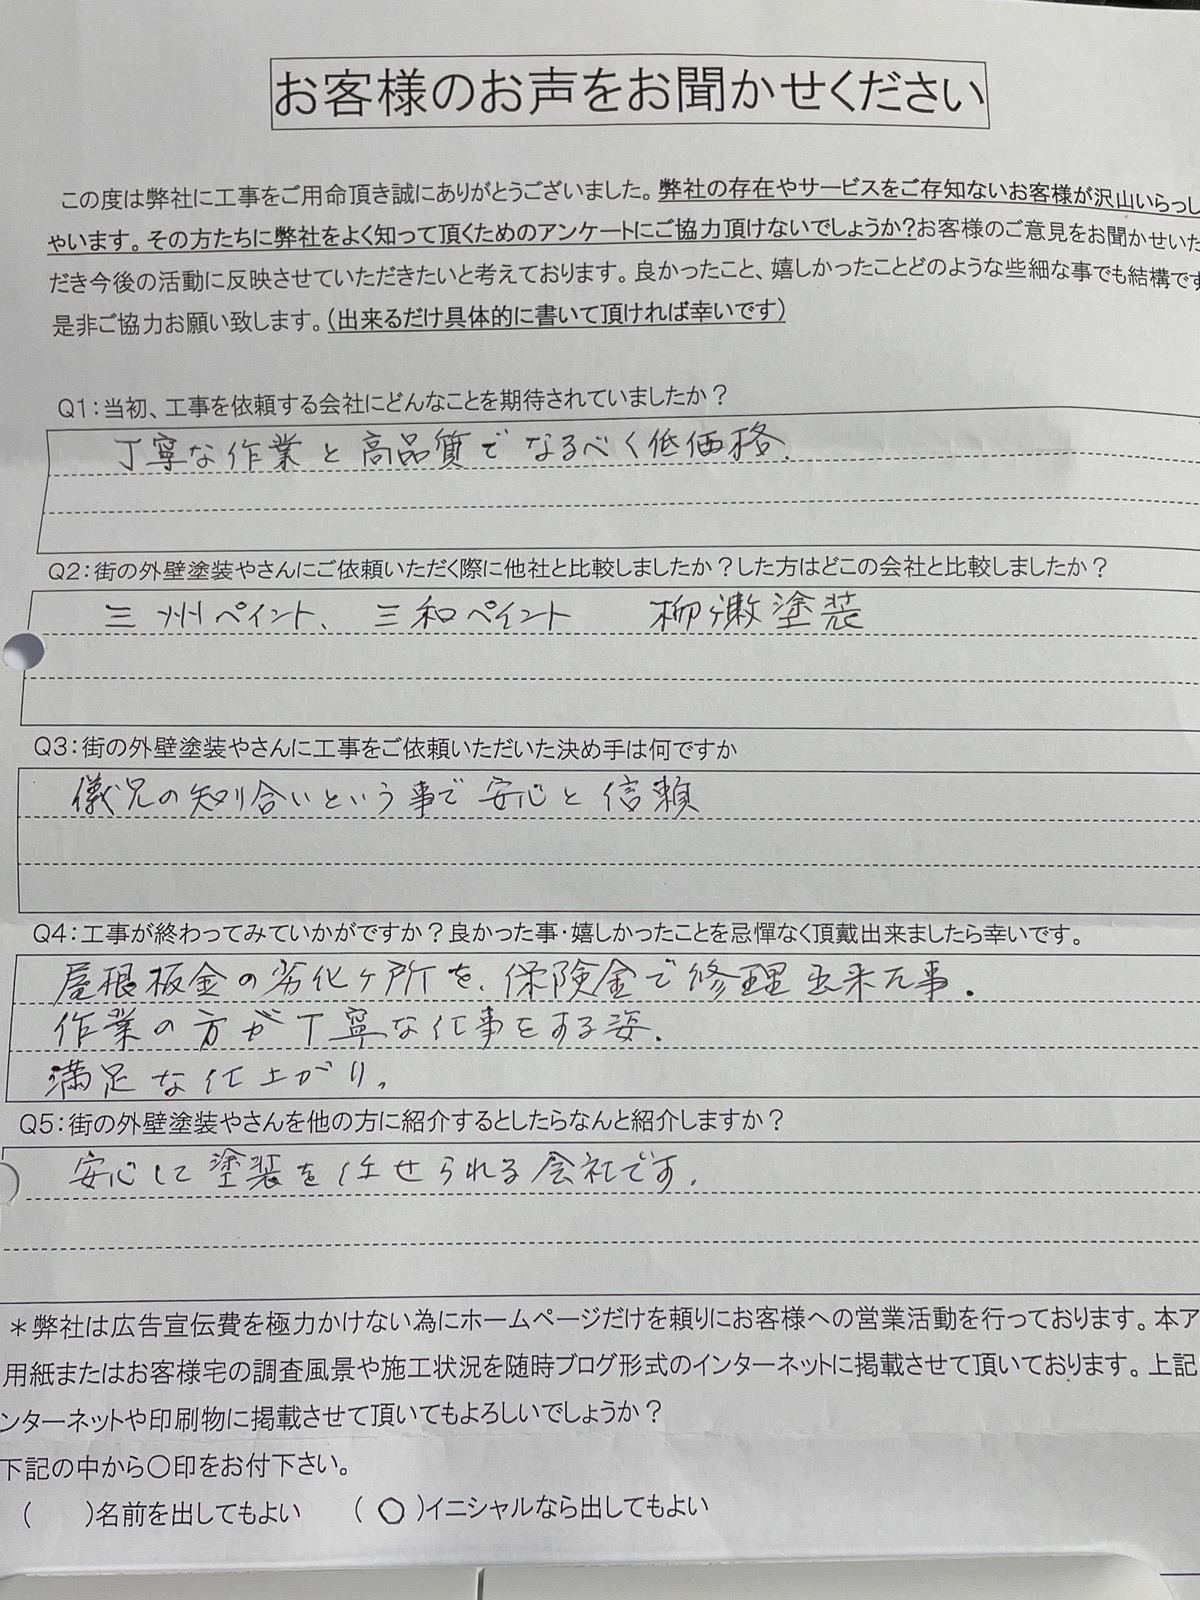 お客様のお声をお聞かせください
この度は弊社に工事をご用命頂き誠にありがとうございました。弊社の存在やサービスをご存知ないお客様が沢山いらっし
ゃいます。その方たちに弊社をよく知って頂くためのアンケートにご協力頂けないでしょうか?お客様のご意見をお聞かせいた
だき今後の活動に反映させていただきたいと考えております。良かったこと、嬉しかったことどのような些細な事でも結構です
是非ご協力お願い致します。(出来るだけ具体的に書いて頂ければ幸いです)
Q1:当初、工事を依頼する会社にどんなことを期待されていましたか?
丁寧な作業と高品質でなるべく低価格.
Q2:街の外壁塗装やさんにご依頼いただく際に他社と比較しましたか?した方はどこの会社と比較しましたか?
三州ペイント、三和ペイント 柳瀬塗装
Q3:街の外壁塗装やさんに工事をご依頼いただいた決め手は何ですか
儀兄の知り合いという事で安心と信頼
Q4:工事が終わってみていかがですか?良かった事・嬉しかったことを忌憚なく頂戴出来ましたら幸いです。
屋根板金の劣化ヶ所を、保険金で修理出来た事.
作業の方が丁寧な仕事をする姿.
満足な仕上がり。
Q5:街の外壁塗装やさんを他の方に紹介するとしたらなんと紹介しますか?
安心して塗装を任せられる会社です.
*弊社は広告宣伝費を極力かけない為にホームページだけを頼りにお客様への営業活動を行っております。本ア
用紙またはお客様宅の調査風景や施工状況を随時ブログ形式のインターネットに掲載させて頂いております。上記
ンターネットや印刷物に掲載させて頂いてもよろしいでしょうか?
下記の中から〇印をお付下さい。
( )名前を出してもよい (○)イニシャルなら出してもよい